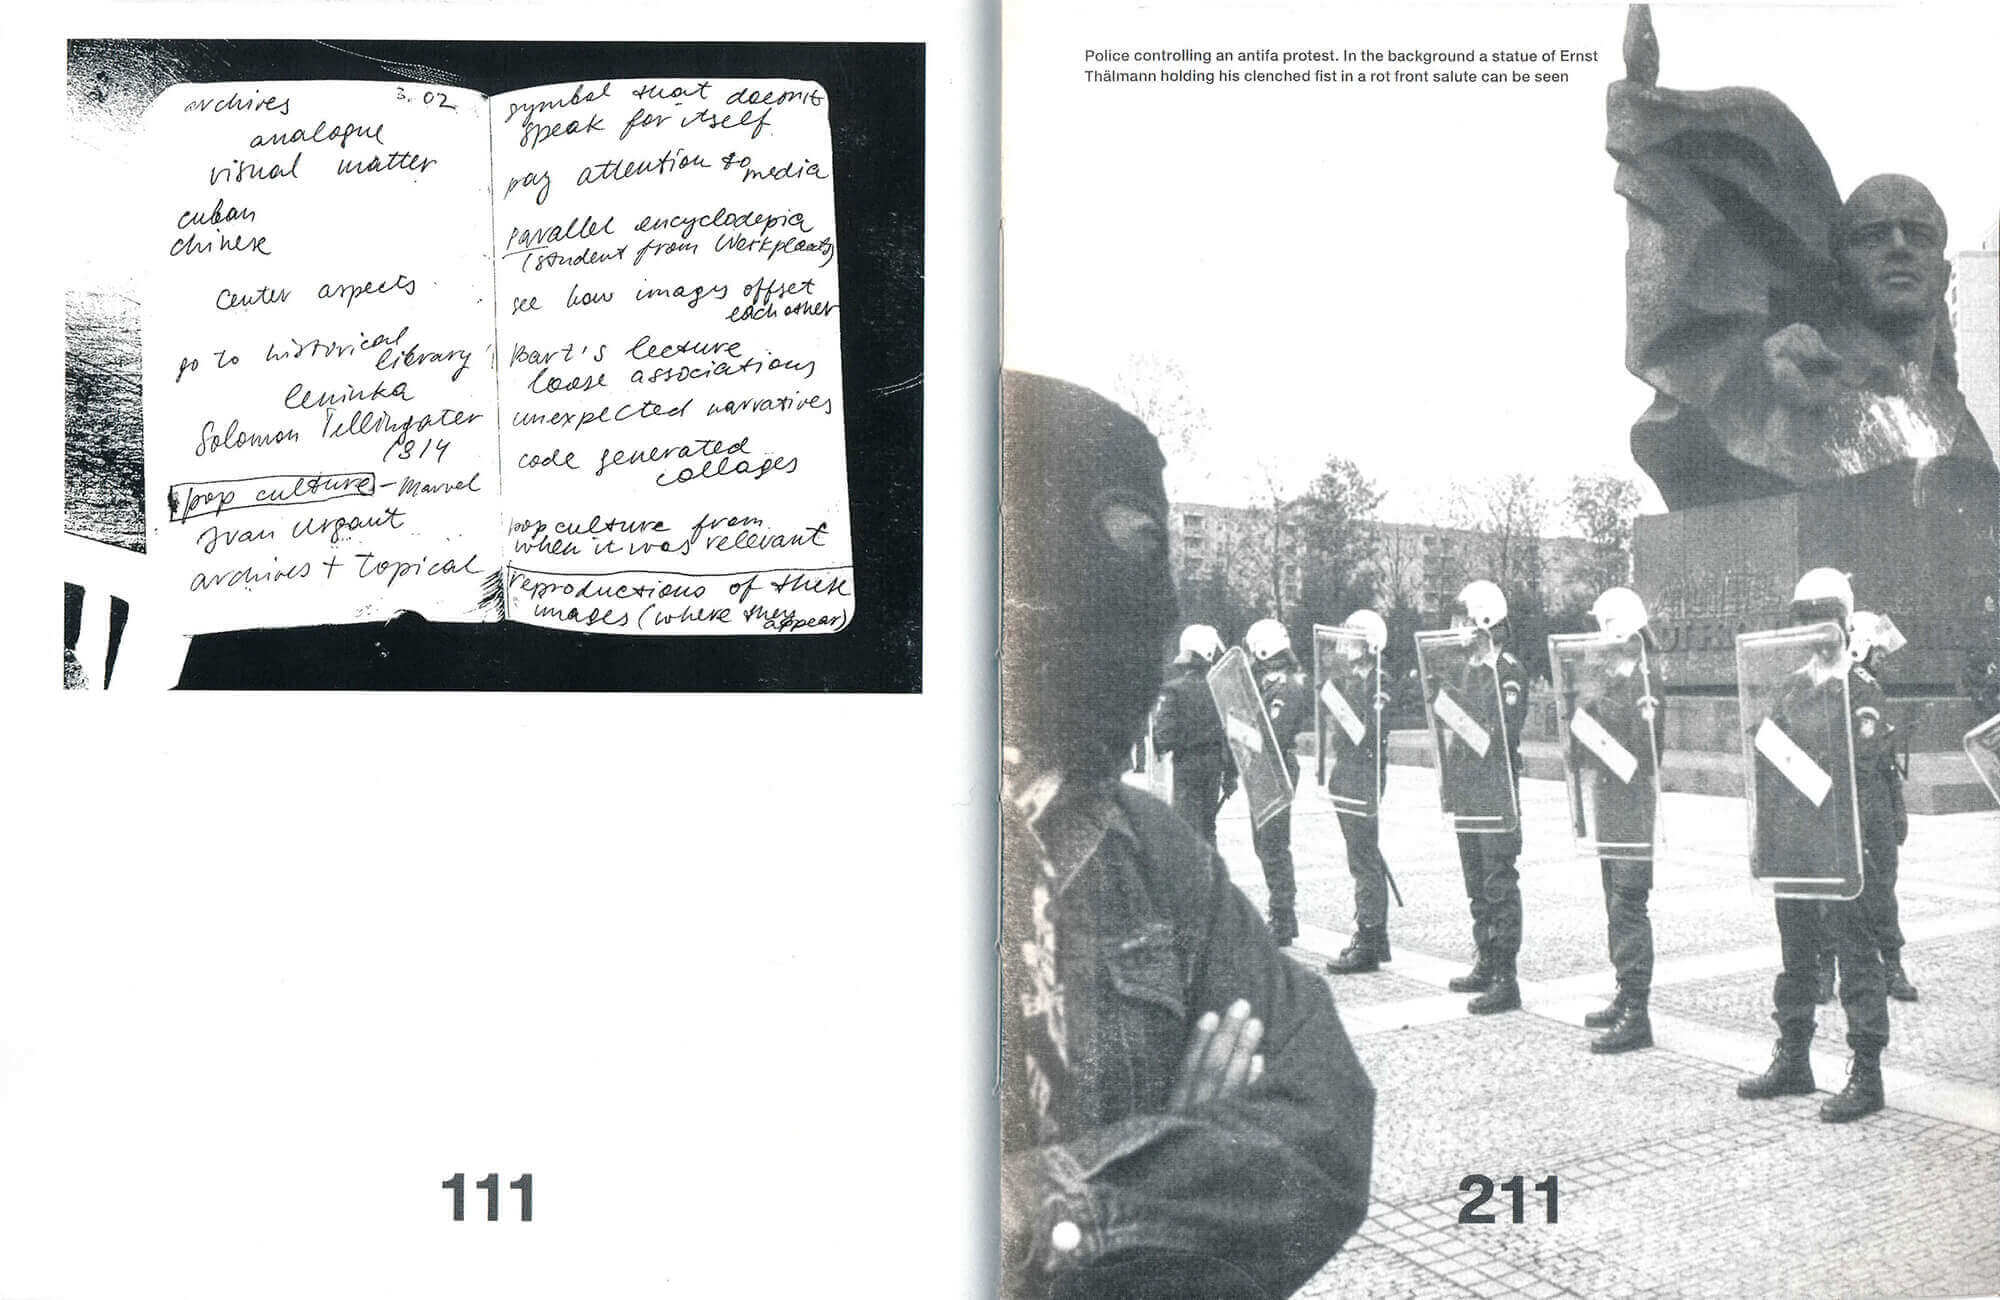 archives 3.02
analogue
visual matter
cuban
chinese
center aspects
go to historical
library
leninka
Solomon Tellingater
1314
pop culture - Marvel
Ivan Urgant
archives + topical
symbol that doesn't
speak for itself
pay attention to
media
parallel encyclodepia
(student from Werkplaats)
see how images offset
each other
Bart's lecture
loose associations
unexpected narratives
code generated
collages
pop culture from
when it was relevant
reproductions of these
images (where they
appear)
111
Police controlling an antifa protest. In the background a statue of Ernst
Thälmann holding his clenched fist in a rot front salute can be seen
211